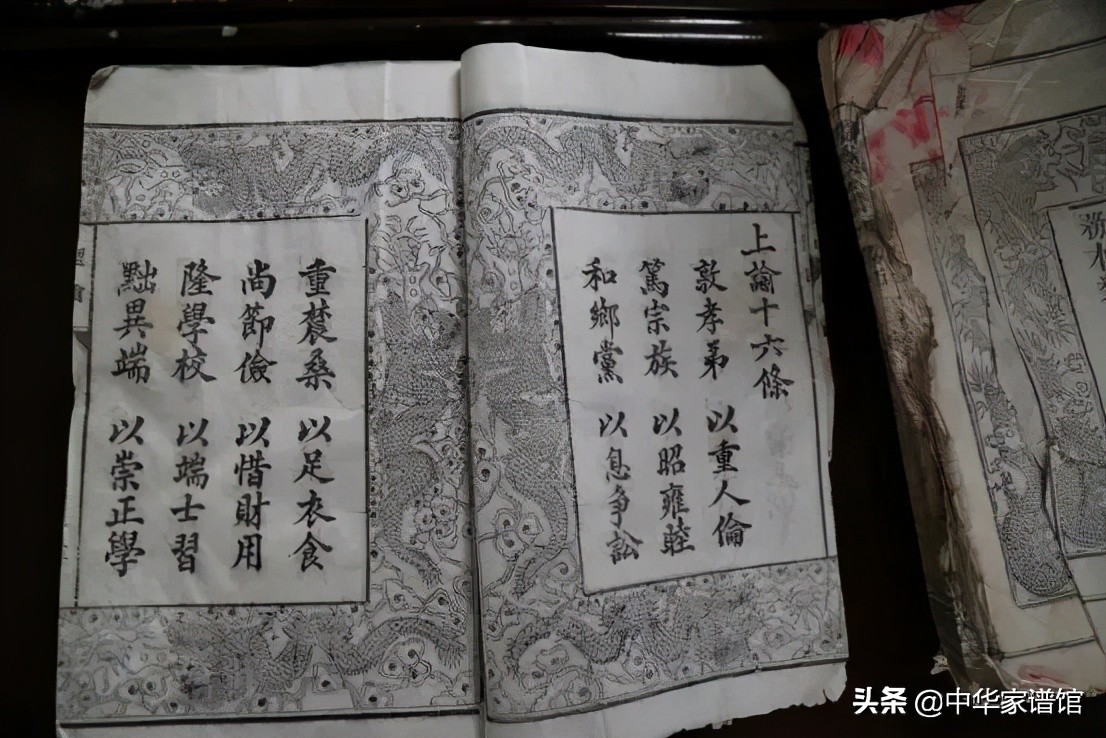 上諭十六條
敦孝弟 以重人倫
篤宗族 以昭雍睦
和鄉黨 以息争訟
重農桑 以足衣食
尚節儉 以惜財用
隆學校 以端士習
黜異端 以崇正學
头条 @中华家谱馆